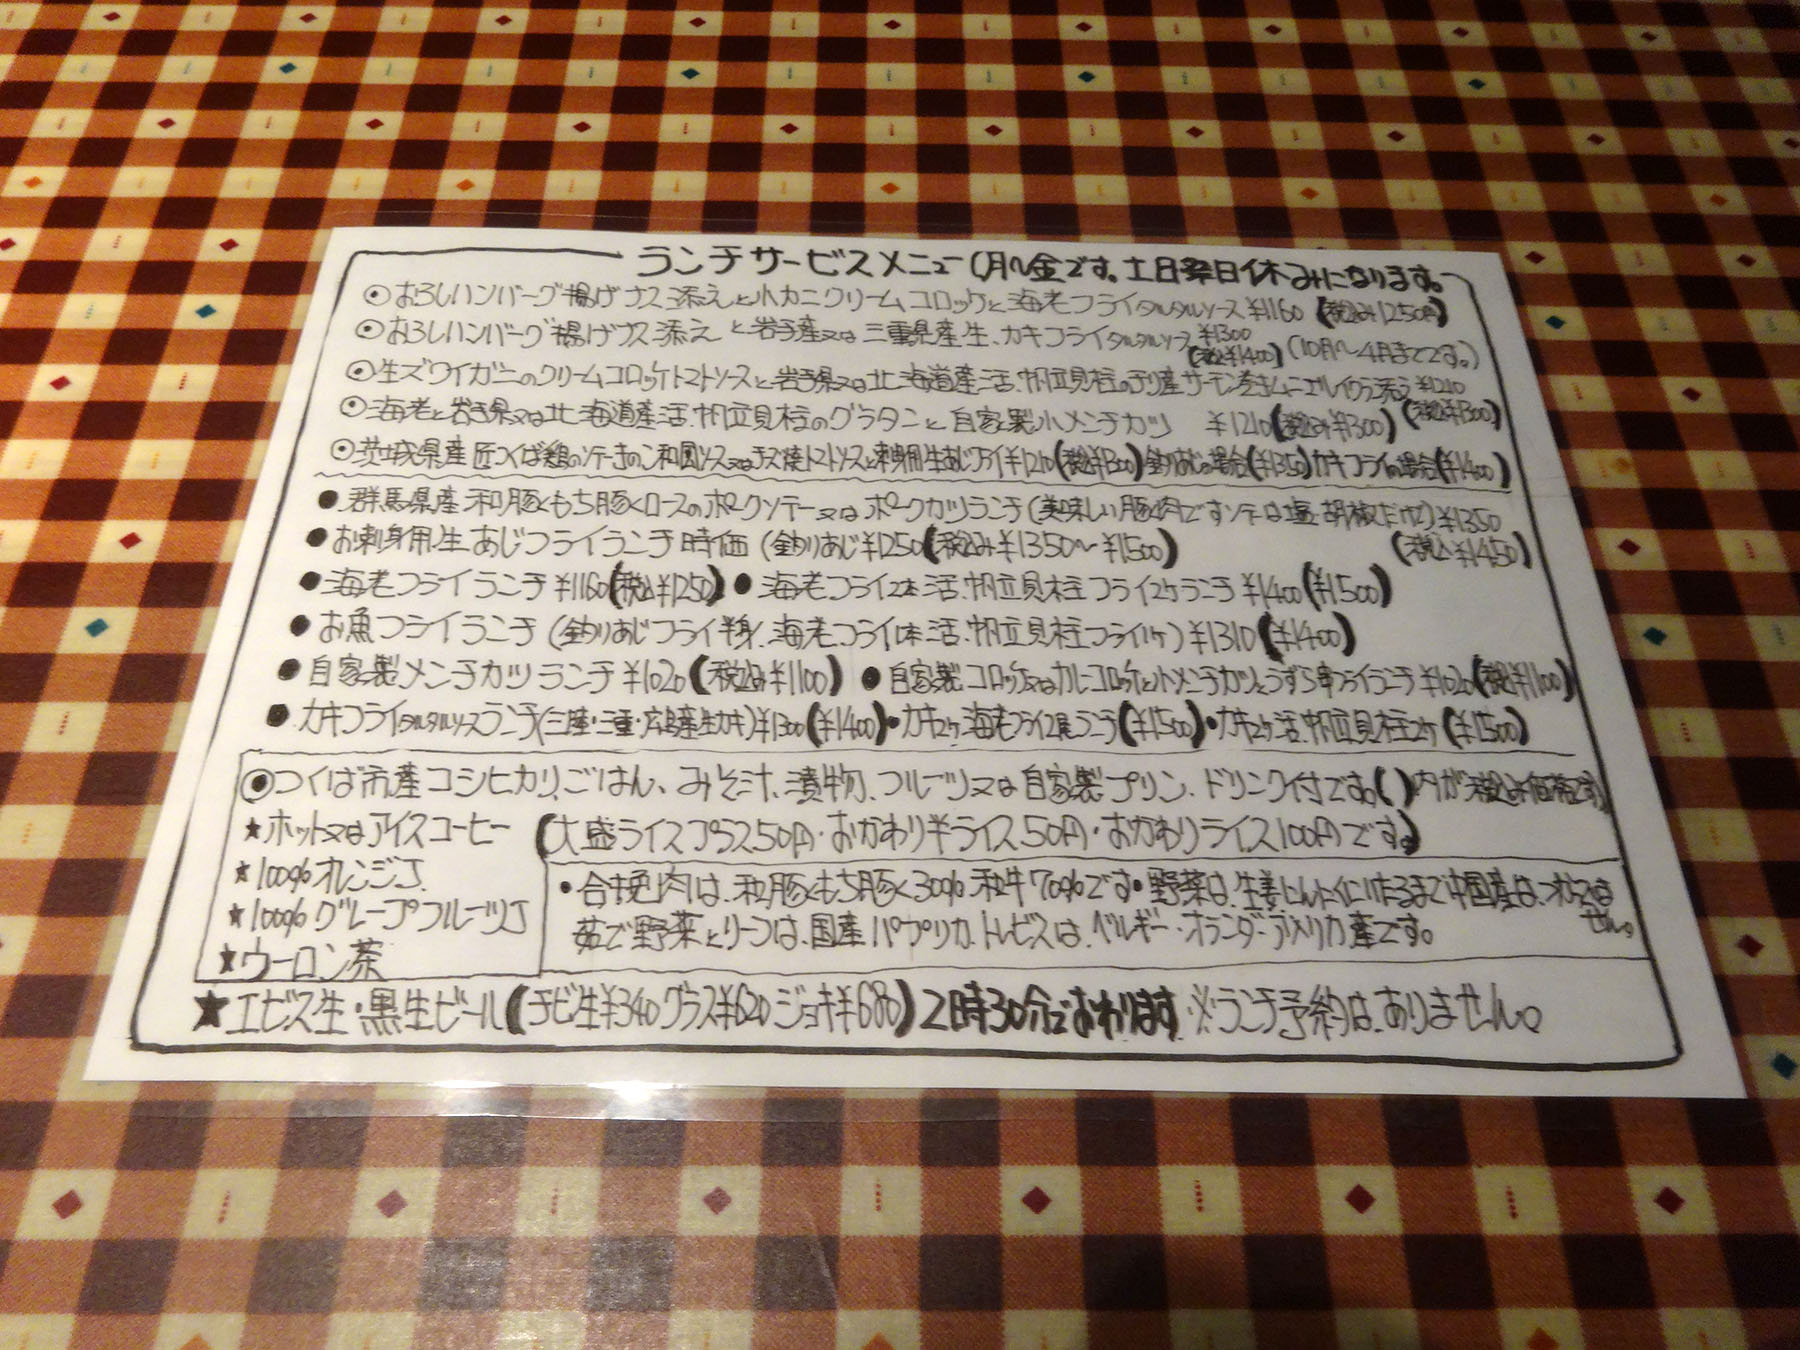 ランチサービスメニュー(月〜金です。土日祭日休みになります。
◉おろしハンバーグ揚げナス添えと小カニクリームコロッケと海老フライタルタルソース¥1160(税込み1250円)
◉おろしハンバーグ揚げナス添えと岩手産又は三重県産生カキフライタルタルソース¥1300
(税込¥1400)(10月〜4月までです。)
◉生ズワイガニのクリームコロッケトマトソースと岩手県又は北海道産活帆立貝柱のチリ産サーモン巻きムニエルイクラ添え¥1210
(税込¥1300)
◉海老と岩手県又は北海道産活帆立貝柱のグラタンと自家製小メンチカツ ¥1210(税込み¥1300)
◉茨城県産匠つくば鶏のソテーきのこ和風ソース又はチーズ焼トマトソースと刺身用生あじフライ¥1210(税込¥1300)釣りあじの場合(¥1350)カキフライの場合(¥1400)
●群馬県産和豚もち豚ロースのポークソテー又はポークカツランチ(美味しい豚肉ですソテーは塩胡椒だけ)¥1350
(税込¥1450)
●お刺身用生あじフライランチ時価(釣りあじ¥1250(税込み¥1350〜¥1500)
●海老フライランチ¥1160(税込¥1250)●海老フライ2本活帆立貝柱フライ2ケランチ¥1400(¥1500)
●お魚フライランチ(釣りあじフライ半身、海老フライ1本活帆立貝柱フライ1ケ)¥1310(¥1400)
●自家製メンチカツランチ¥1020(税込み¥1100)●自家製コロッケ又はカレーコロッケと小メンチカツとうずら串フライランチ¥1020(税込¥1100)
●カキフライタルタルソースランチ(三陸・三重・広島産生カキ)¥1300(¥1400)•カキ2ケ海老フライ2尾ランチ(¥1500)•カキ2ケ活帆立貝柱2ケ(¥1500)
◉つくば市産コシヒカリ、ごはん、みそ汁、漬物、フルーツ又は自家製プリン、ドリンク付です。()内が税込み価格です
★ホット又はアイスコーヒー(大盛ライスプラス50円・おかわり半ライス50円・おかわりライス100円です。)
★100%オレンジJ
★100%グレープフルーツJ
★ウーロン茶
•合挽肉は、和豚もち豚30%和牛70%です•野菜は、生姜にんにくにいたるまで中国産は、つかってません。
茹で野菜とリーフは、国産パプリカ、トレビスは、ベルギー・オランダ・アメリカ産です。
★エビス生・黒生ビール(チビ生¥340グラス¥620ジョキ¥680)2時30分でおわります※ランチ予約は、ありません。